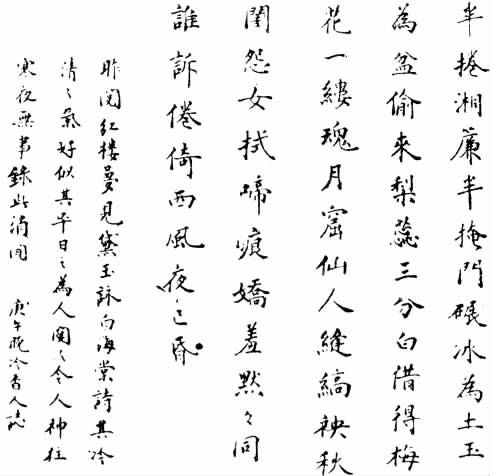 半捲湘簾半掩門碾冰為土玉
為盆偷來梨蕊三分白借得梅
花一縷魂月窟仙人縫縞袂秋
閨怨女拭啼痕嬌羞默々同
誰訴倦倚西風夜已昏
昨閱紅楼夢見黛玉詠白海棠詩其冷
清之氣好似其平日之為人閱之令人神往
寒夜無事錄此消閒 庚午晚冷香人誌